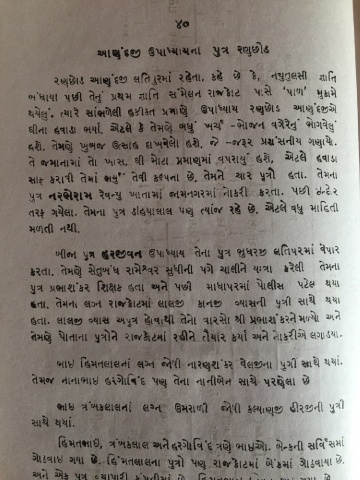 ૪૦
આણંદજી ઉપાધ્યાયના પુત્ર રણછોડ
રણછોડ આણંદજી લતિપુરમાં રહેતા. કહે છે કે, નથુતુલસી જ્ઞાતિ
બંધાયા પછી તેનું પ્રથમ જ્ઞાતિ સંમેલન રાજકોટ પાસે 'પાળ' મુકામે
થયેલું. ત્યારે સાંભળેલી હકીકત પ્રમાણે ઉપાધ્યાય રણછોડ આણંદજીએ
ઘીના હવાડા ભર્યા. એટલે કે તેમણે બધું ખર્ચ -ભોજન વગેરેનું ભોગવેલું
હશે. તેમણે ખુબજ ઉત્સાહ દાખવેલો હશે. જે -જરૂર પ્રશંસનીય ગણાયે.
તે જમાનામાં તો ખાસ. ઘી મોટા પ્રમાણમાં વપરાયું હશે, એટલે હવાડા
સાફ કરાવી તેમાં ભર્યું તેવી કલ્પના છે. તેમને ચાર પુત્રો હતા. તેમના
પુત્ર નરભેરામ રેવન્યુ ખાતામાં જામનગરમાં નોકરી કરતા. પછી ઇન્દોર
તરફ ગયેલા. તેમના પુત્ર ડાહયાલાલ પણ ત્યાંજ રહે છે. એટલે વધુ માહિતી
મળતી નથી.
બીજા પુત્ર હરજીવન ઉપાધ્યાય તેના પુત્ર ભુધરજી લતિપરમાં વેપાર
કરતા. તેમણે સેતુબંધ રામેશ્વર સુધીની પગે ચાલીને યાત્રા કરેલી તેમના
પુત્ર પ્રભાશંકર શિક્ષક હતા અને પછી માધાપરમાં પોલીસ પટેલ થયા
હતા. તેમના લગ્ન રાજકોટમાં લાલજી કાનજી વ્યાસની પુત્રી સાથે થયા
હતા. લાલજી વ્યાસ અપુત્ર હોવાથી તેનો વારસો શ્રી પ્રભાશંકરને મળ્યો અને
તેમણે પોતાના પુત્રોને રાજકોટમાં રાખીને તૈયાર કર્યા અને નોકરીએ લગાડયા.
ભાઇ હિમતલાલનાં લગ્ન જોષી નારણશંકર વેલજીના પુત્રી સાથે થયાં.
તેમજ નાનાભાઇ હરગોવિંદ પણ તેના નાનીબેન સાથે પરણેલા છે
ભાઇ ત્રંબકલાલનાં લગ્ન ઉમરાળી જોષી કલ્યાણજી હીરજીની પુત્રી
સાથે થયાં.
હિમતભાઇ, ત્રંબકલાલ અને હરગોવિંદ ત્રણે ભાઇઓ. બેન્કની સર્વિસમાં
ગોઠવાઇ ગયા છે. હિંમતલાલના પુત્રો પણ રાજકોટમાં બેંકમાં ગોઠવાયા છે.
અને એક પુત્ર